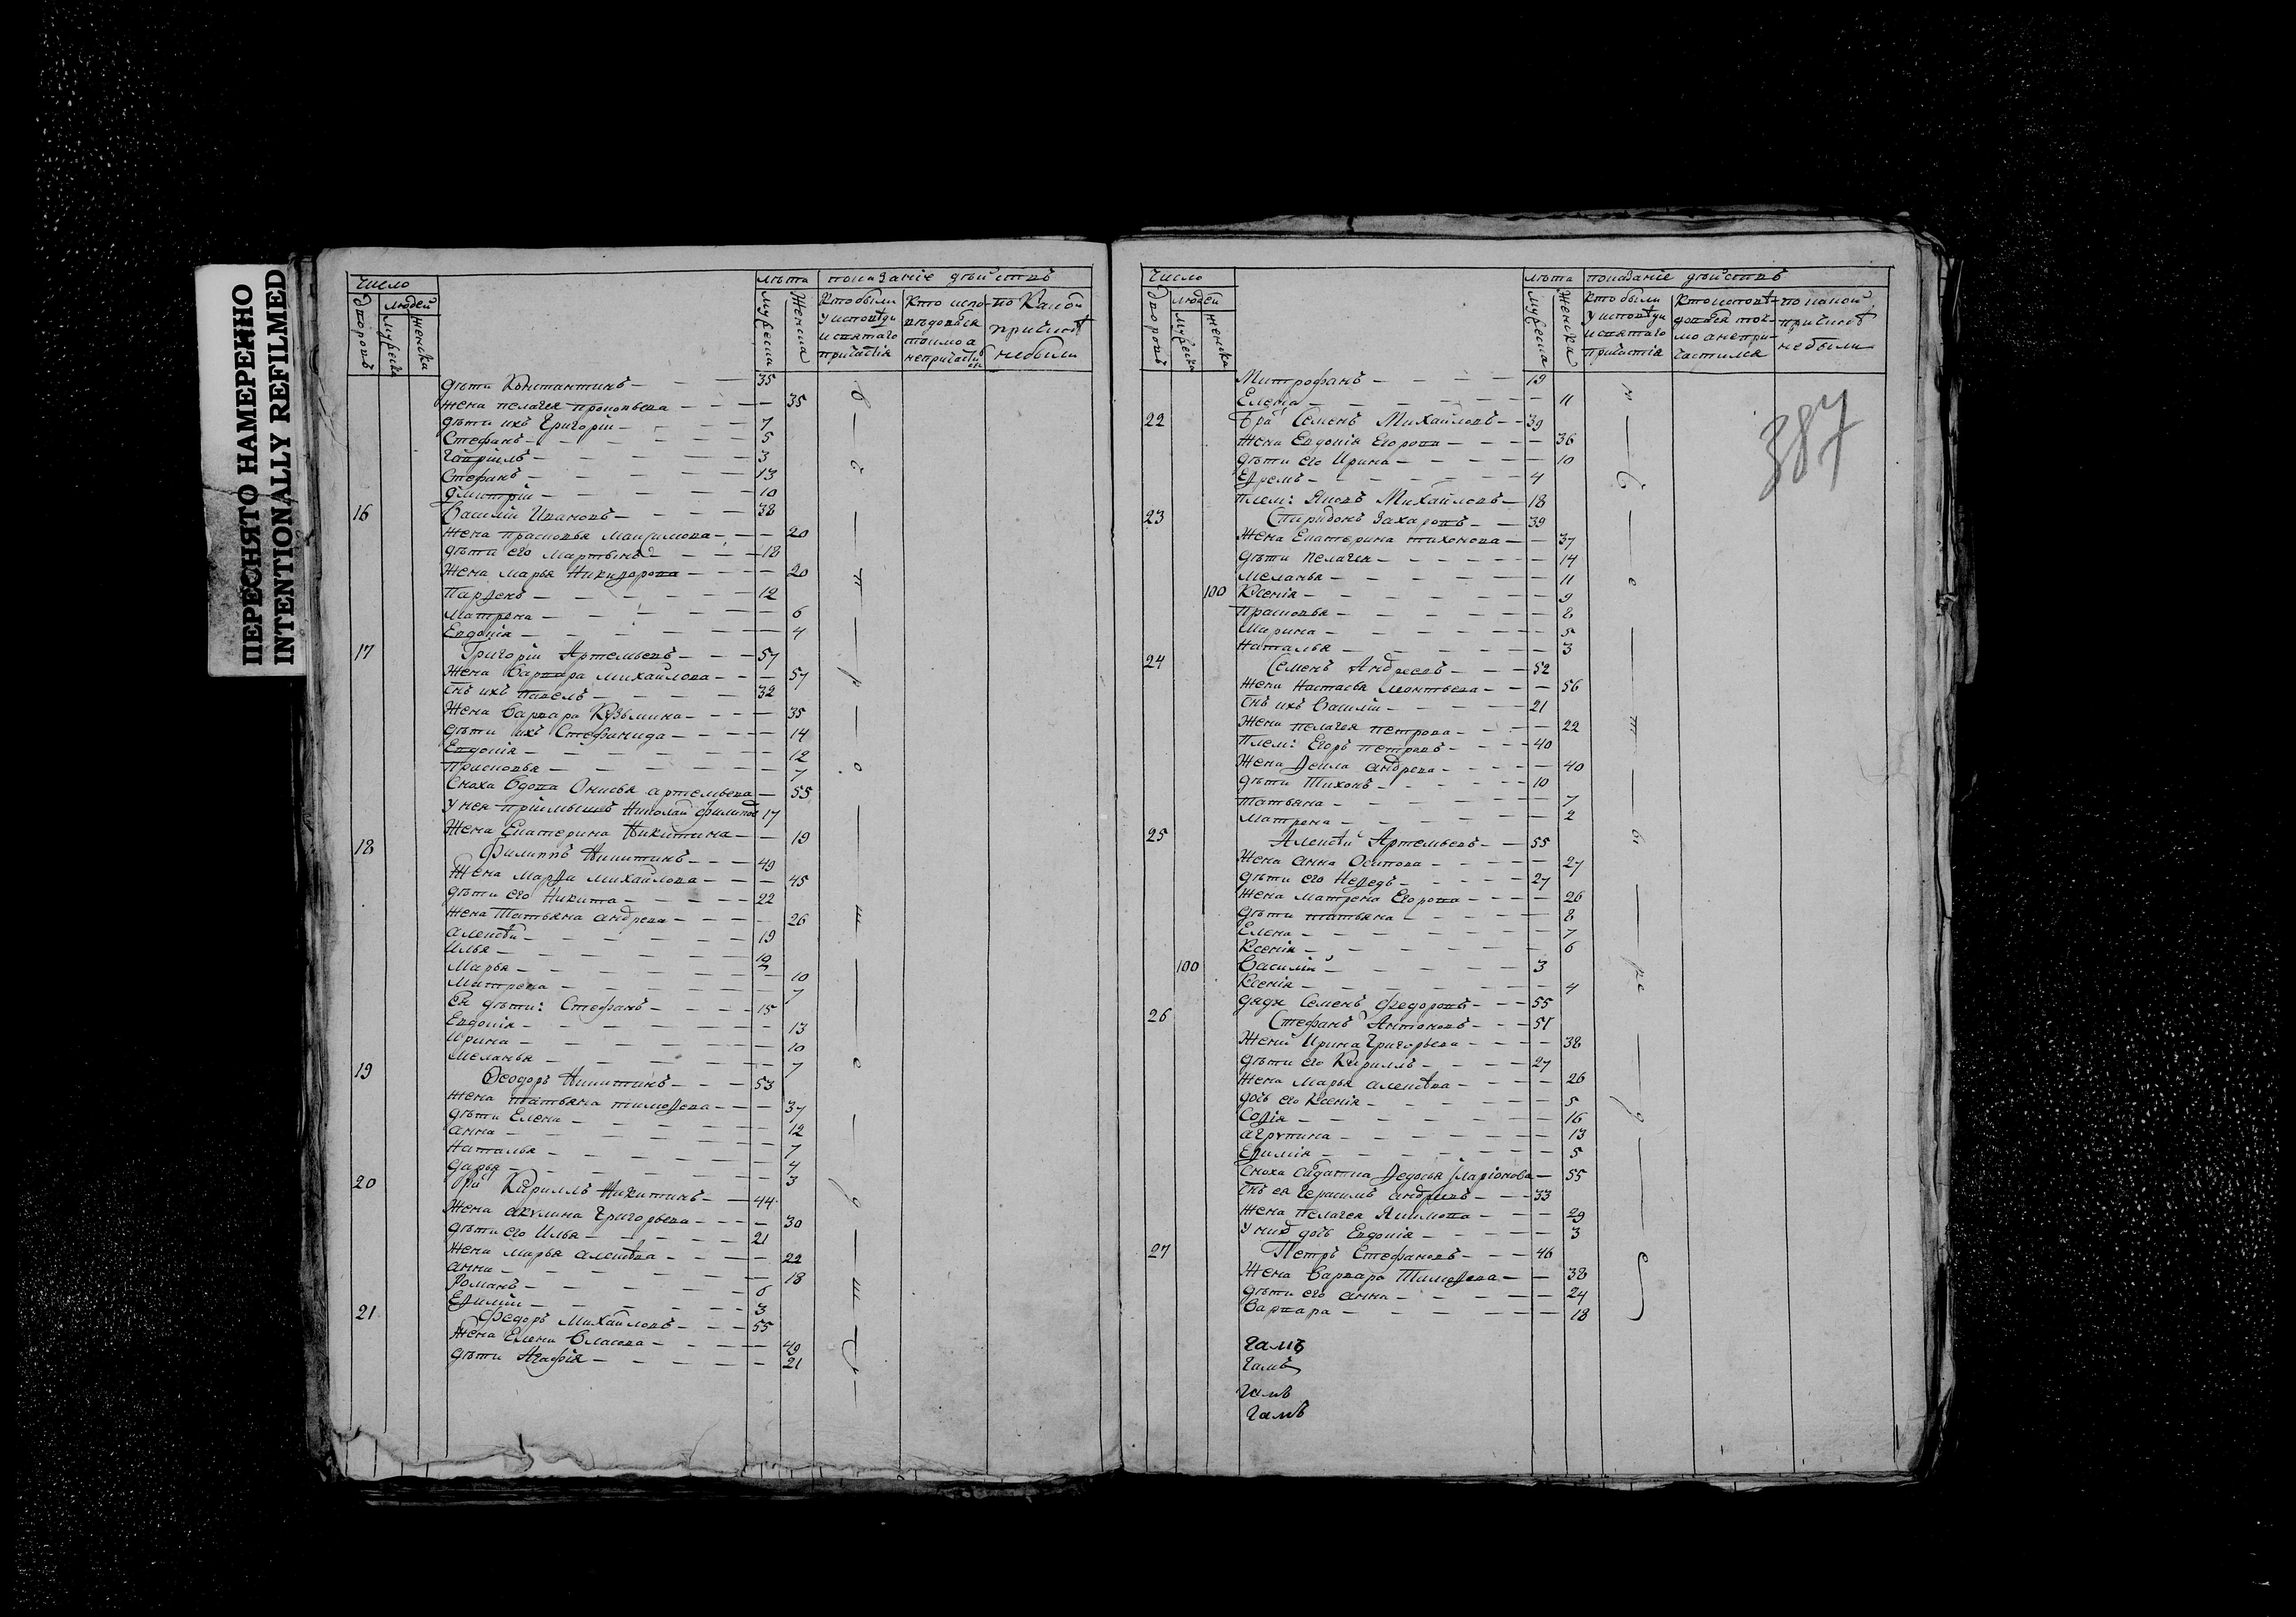 ПЕРЕСНЯТО НАМЕРЕННО
INTENTIONALLY REFILMED
Число
лѣта показаніе дѣйствъ
дворовъ людей мужеска женска
мужеска женска
Кто были у исповѣди и святаго причастія
Кто исповѣдовался токмо а непричастился
по какой причинѣ небыли
дѣти Константинъ 35
жена пелагея прокопьева 35
дѣти ихъ Григорій 7
Стефанъ 5
Гавріилъ 3
Стефанъ 13
дмитрій 10
16 Василій Ивановъ 38
жена прасковья Максимова 20
дѣти его Мартынъ 18
жена марья Никифорова 20
Парфенъ 12
Матрена 6
Евдокія 4
17 Григорій Артемьевъ 57
жена варвара михайлова 57
Снъ ихъ павелъ 32
жена варвара Кузьмина 35
дѣти ихъ Стефанида 14
Евдокія 12
Прасковья 7
Сноха вдова Онисья артемьева 55
у нея пріимышъ Николай филипов 17
жена Екатерина Никитина 19
18 Филиппъ Никитинъ 49
жена марфа михайлова 45
дѣти его Никита 22
жена Татьяна андрева 26
алексѣй 19
Илья
Марья 10
Матрена 7
ея дѣти: Стефанъ 15
Евдокія 13
Ирина 10
Меланья 7
19 Ѳеодоръ Никитинъ 53
жена татьяна тимофева 37
дѣти Елена 12
анна 7
Наталья 4
дарья 3
20 Кириллъ Никитинъ 44
жена акулина Григорьева 30
дѣти его Илья 21
жена марья алексѣва 22
анна 18
Романъ 6
Ефимій 3
21 Федоръ Михайловъ 55
жена Елена Власова 49
дѣти Агафія 21
Число
лѣта показаніе дѣйствъ
дворовъ людей мужеска женска
мужеска женска
Кто были у исповѣди и святаго причастія
Кто исповѣдовался токмо а непричастился
по какой причинѣ небыли
387
Митрофанъ 19
Елена 11
22 Бра Семенъ Михайловъ 39
жена Евдокія Егорова 36
дѣти его Ирина 10
Ефремъ 4
плем: Яковъ Михайловъ 18
23 Спиридонъ Захаровъ 39
жена Екатерина тихонова 37
дѣти пелагея 14
меланья 11
100 Ксенія 9
прасковья 8
Марина 5
Наталья 3
24 Семенъ Андреевъ 52
жена настасья леонтьева 56
Снъ ихъ Василій 21
жена пелагея петрова 22
плем: Егоръ петровъ 40
жена фекла андрева 40
дѣти Тихонъ 10
татьяна 7
матрена 2
25 Алексѣй Артемьевъ 55
жена анна Осипова 27
дѣти его Нефедъ 27
жена матрена Егорова 26
дѣти татьяна 8
Елена 7
Ксенія 6
100 Василій 3
Ксенія 4
дядя Семенъ федоровъ 55
26 Стефанъ Антоновъ 51
жена Ирина Григорьева 38
дѣти его Кириллъ 27
жена марья алексѣва 26
дочь его Ксенія 5
Софія 16
агрупина 13
Ефимія 5
Сноха салдатка федосья Ларіонова 55
Снъ ея Герасимъ андревъ 33
жена пелагея Якимова 29
у нихъ дочь Евдокія 3
27 Петръ Стефановъ 46
жена варвара Тимофева 38
дѣти его анна 24
варвара 18